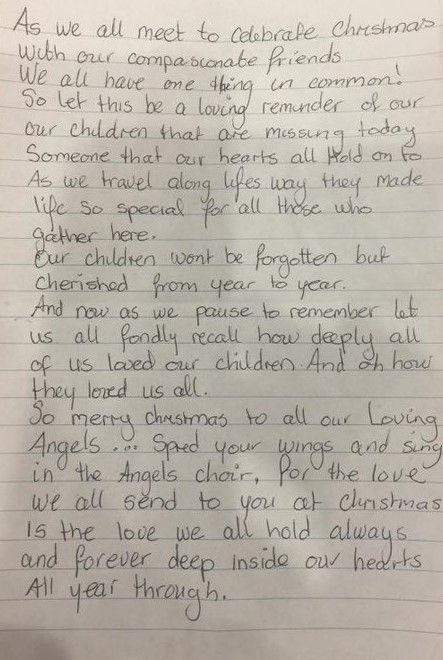 As we all meet to celebrate Christmas
with our compasionate friends
We all have one thing in common!
So let this be a loving reminder of our
our children that are missing today
Someone that our hearts all Hold on to
As we travel along lifes way they made
life so special for all those who
gather here.
Our children wont be forgotten but
cherished from year to year.
And now as we pause to remember let
us all fondly recall how deeply all
of us loved our children. And oh how
they loved us all.
So merry christmas to all our Loving
Angels... Spred your wings and sing
in the Angels choir, For the love
we all send to you at Christmas
Is the love we all hold always
and forever deep inside our hearts
All year through.